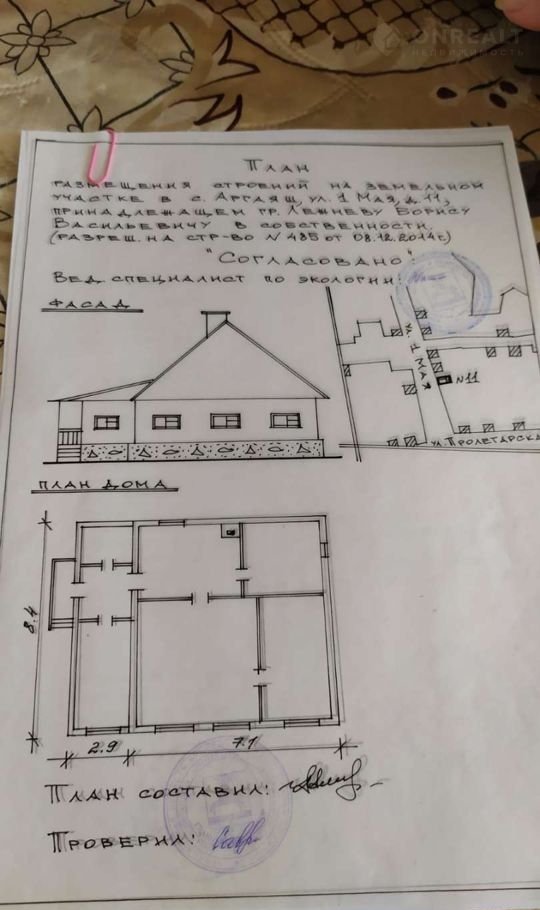 ONREALT
НЕДВИЖИМОСТЬ
ПЛАН
РАЗМЕЩЕНИЯ СТРОЕНИЙ НА ЗЕМЕЛЬНОМ
УЧАСТКЕ В С. АРГАЯШ, УЛ. 1 МАЯ, Д. 11,
ПРИНАДЛЕЖАЩЕМ ГР. ЛЕЖНЕВУ БОРИСУ
ВАСИЛЬЕВИЧУ В СОБСТВЕННОСТИ.
(РАЗРЕШ. НА СТР-ВО №485 ОТ 08.12.2014г.)
"СОГЛАСОВАНО"
ВЕД. СПЕЦИАЛИСТ ПО ЭКОЛОГИИ:
ФАСАД
УЛ. 1 МАЯ
№11
УЛ. ПРОЛЕТАРСКА
ПЛАН ДОМА
8.4
2.9
7.1
ПЛАН СОСТАВИЛ:
ПРОВЕРИЛ: